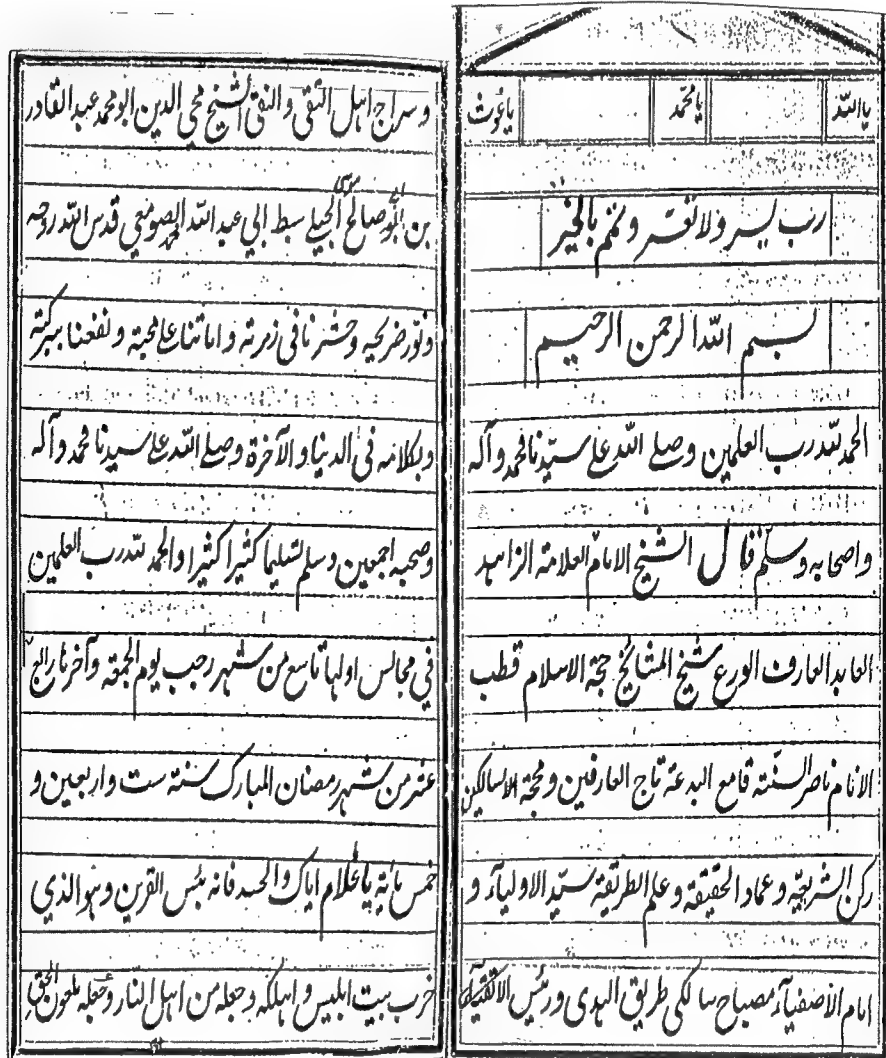 يا الله يا محمد يا غوث
رب يسر ولا تعسر وتمم بالخير
بسم الله الرحمن الرحيم
الحمد لله رب العلمين وصلى الله على سيدنا محمد وآله
واصحابه وسلم قال الشيخ الامام العلامة الزاهد
العابد العارف الورع شيخ المشائخ حجة الاسلام قطب
الانام ناصر السنة قامع البدعة تاج العارفين ومحجة السالكين
ركن الشريعة وعماد الحقيقة وعلم الطريقة سيد الاولياء و
امام الأصفياء مصباح سالكى طريق الهدى ورئيس الاتقياء
وسراج اهل التقى والنقى الشيخ محي الدين ابو محمد عبد القادر
بن ابو صالح موسى الجيلي سبط ابي عبد الله الصومعي قدس الله روحه
ونور ضريحه وحشرنا في زمرته واماتنا على محبته ونفعنا ببركته
وبكلامه في الدنيا والآخرة وصلى الله على سيدنا محمد وآله
وصحبه اجمعين وسلم تسليما كثيرا كثيرا والحمد لله رب العلمين
في مجالس اولها تاسع من شهر رجب يوم الجمعة وآخرها رابع
عشر من شهر رمضان المبارك سنة ست واربعين و
خمس مائة يا غلام اياك والحسد فانه بئس القرين وهو الذي
خرب بيت ابليس واهلكه وجعله من اهل النار وجعله ملعون الحق